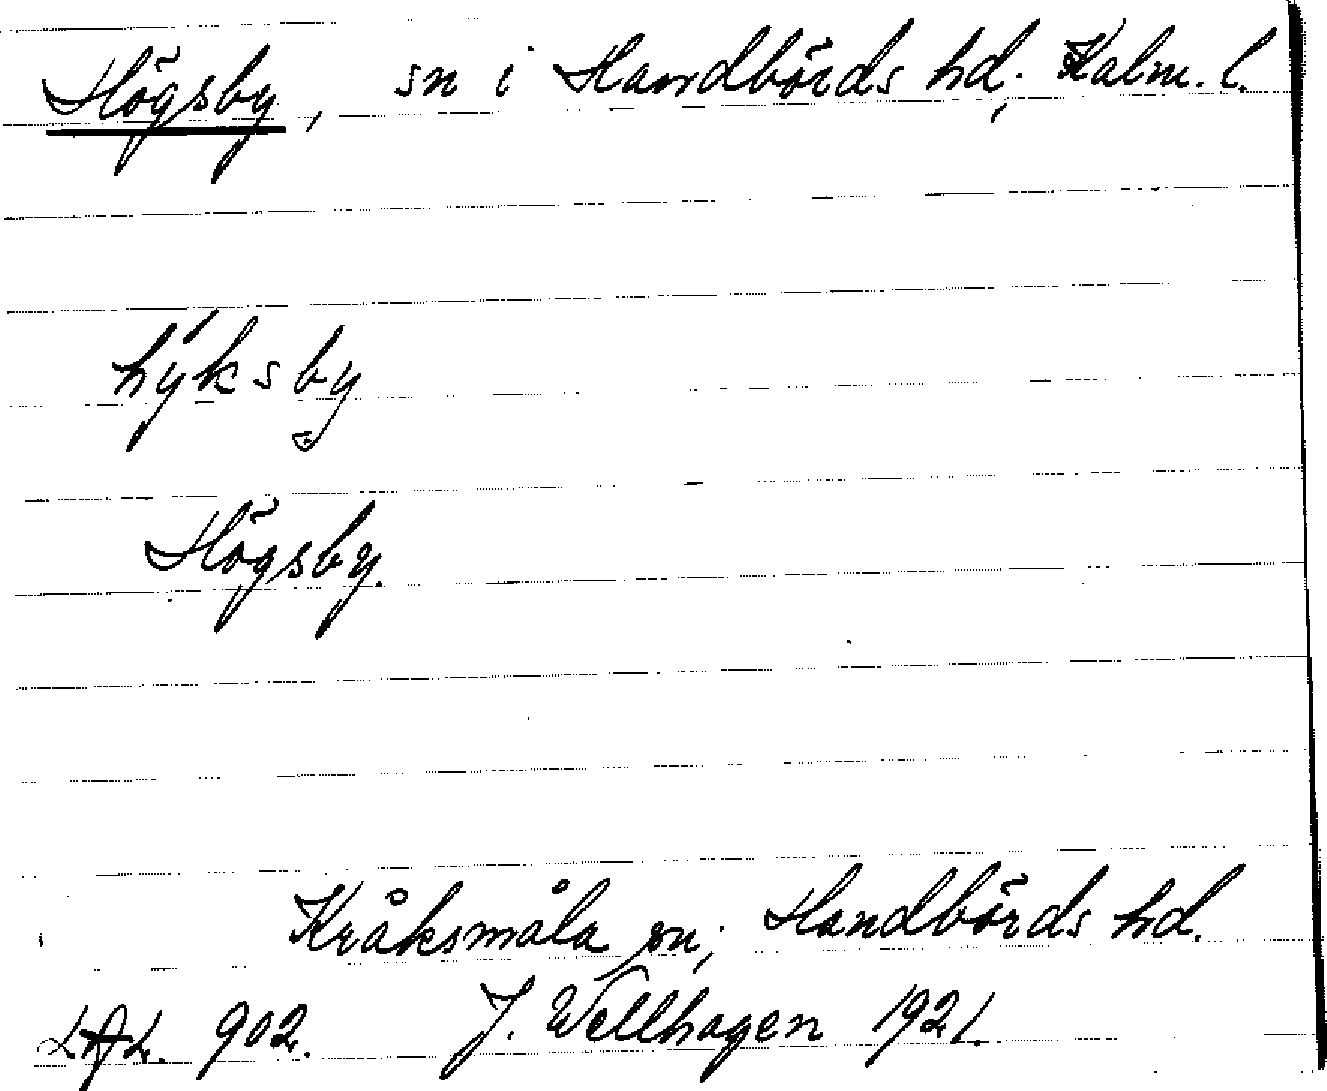 Högsby, sn i Handbörds hd, Kalm. l.
hýksby
Högsby.
Kråksmåla sn, Handbörds hd.
LAL. 902. J. Wellhagen 1921.